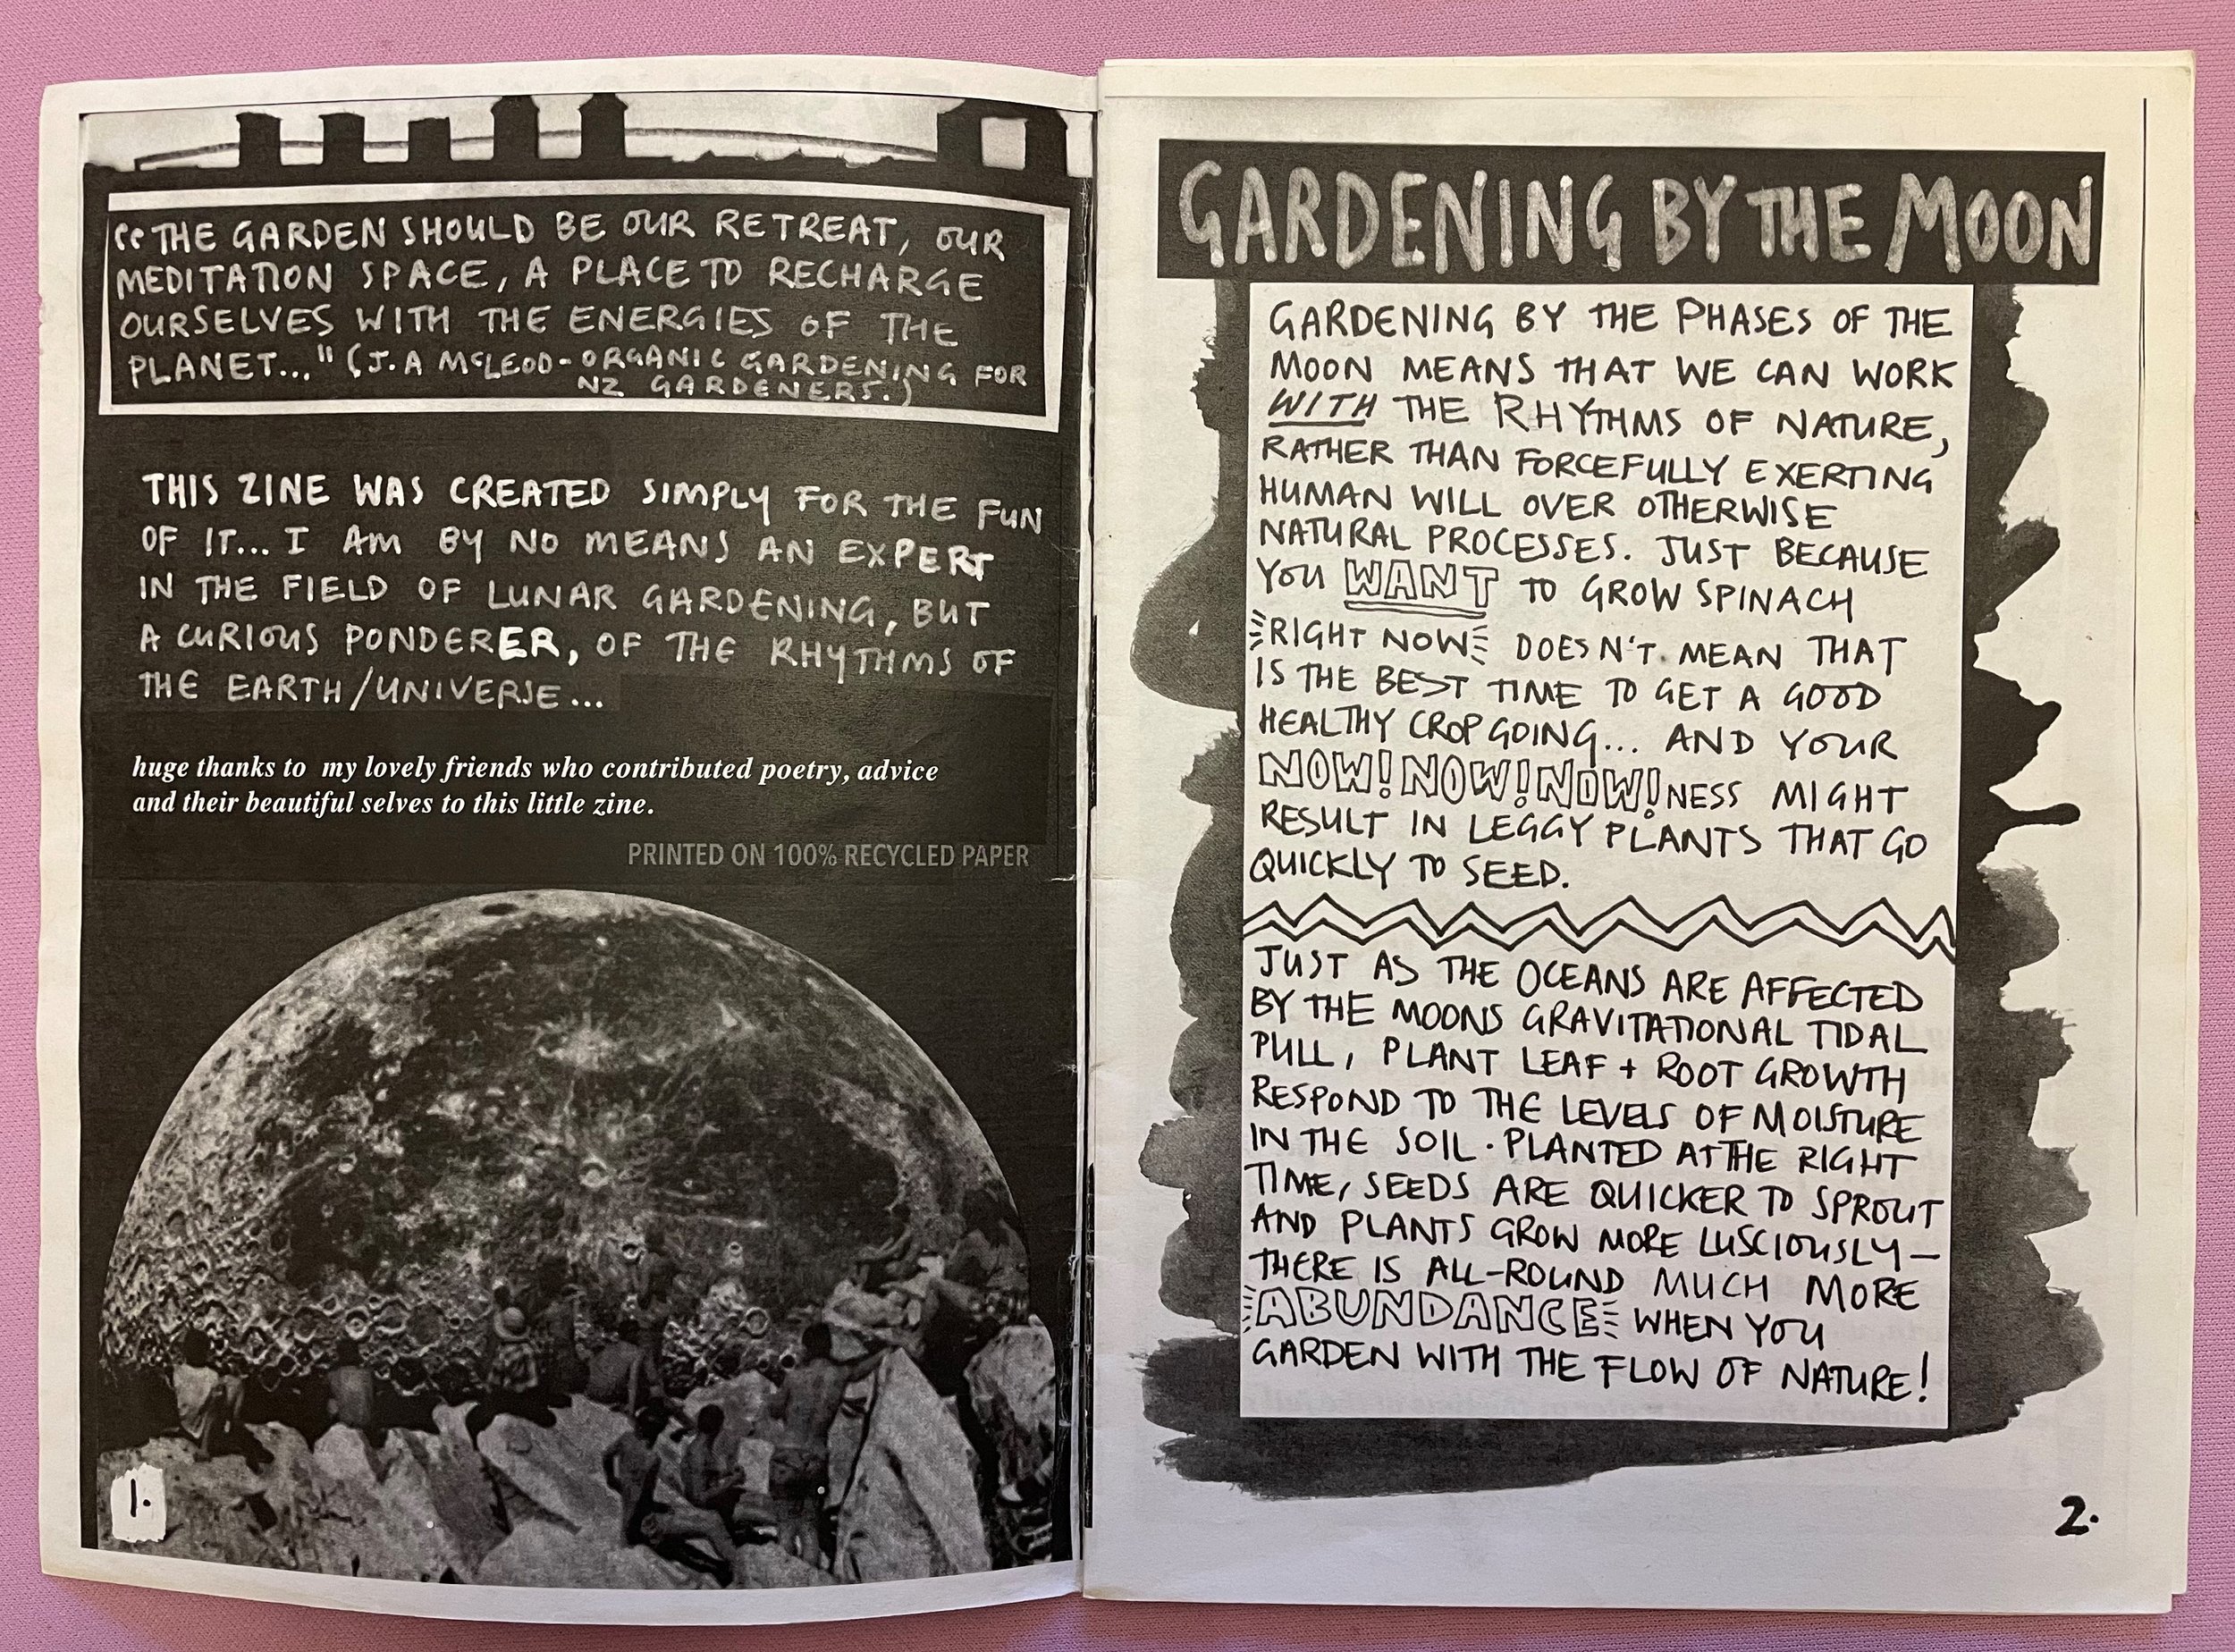 “THE GARDEN SHOULD BE OUR RETREAT, OUR
MEDITATION SPACE, A PLACE TO RECHARGE
OURSELVES WITH THE ENERGIES OF THE
PLANET..." (J.A McLEOD - ORGANIC GARDENING FOR
NZ GARDENERS.)
THIS ZINE WAS CREATED SIMPLY FOR THE FUN
OF IT... I AM BY NO MEANS AN EXPERT
IN THE FIELD OF LUNAR GARDENING, BUT
A CURIOUS PONDERER, OF THE RHYTHMS OF
THE EARTH/UNIVERSE...
huge thanks to my lovely friends who contributed poetry, advice
and their beautiful selves to this little zine.
PRINTED ON 100% RECYCLED PAPER
1.
GARDENING BY THE MOON
GARDENING BY THE PHASES OF THE
MOON MEANS THAT WE CAN WORK
WITH THE RHYTHMS OF NATURE,
RATHER THAN FORCEFULLY EXERTING
HUMAN WILL OVER OTHERWISE
NATURAL PROCESSES. JUST BECAUSE
YOU WANT TO GROW SPINACH
RIGHT NOW DOESN'T MEAN THAT
IS THE BEST TIME TO GET A GOOD
HEALTHY CROP GOING... AND YOUR
NOW! NOW! NOW! NESS MIGHT
RESULT IN LEGGY PLANTS THAT GO
QUICKLY TO SEED.
JUST AS THE OCEANS ARE AFFECTED
BY THE MOONS GRAVITATIONAL TIDAL
PULL, PLANT LEAF + ROOT GROWTH
RESPOND TO THE LEVELS OF MOISTURE
IN THE SOIL. PLANTED AT THE RIGHT
TIME, SEEDS ARE QUICKER TO SPROUT
AND PLANTS GROW MORE LUSCIOUSLY —
THERE IS ALL-ROUND MUCH MORE
ABUNDANCE WHEN YOU
GARDEN WITH THE FLOW OF NATURE!
2.